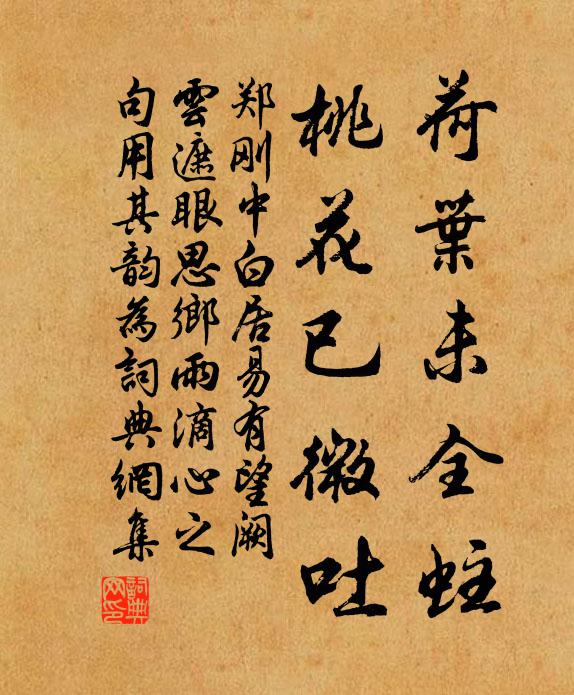 荷葉未全蛀
桃花已微吐
郑刚中白居易有望阙
雲遮眼思鄉雨滴心之
句用其韵為詞典網集
詞典網印